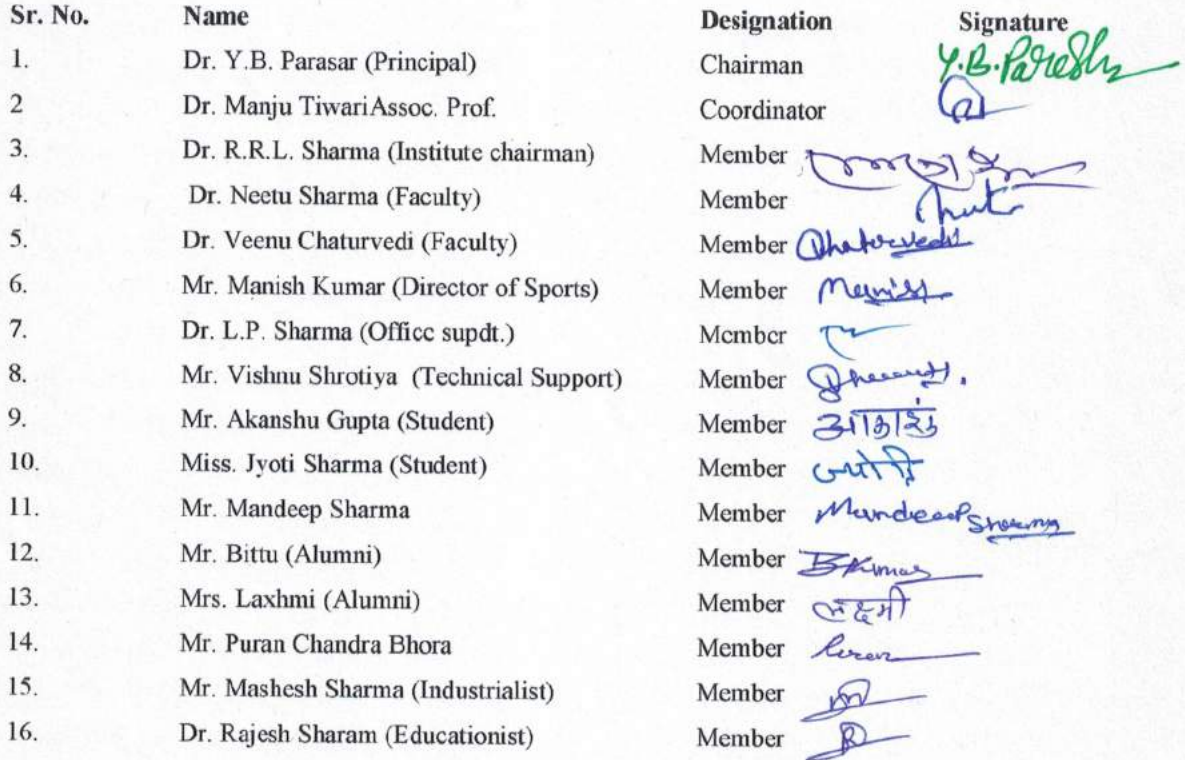 Sr. No. Name Designation Signature
1. Dr. Y.B. Parasar (Principal) Chairman Y.B.Paresh
2 Dr. Manju TiwariAssoc. Prof. Coordinator
3. Dr. R.R.L. Sharma (Institute chairman) Member
4. Dr. Neetu Sharma (Faculty) Member
5. Dr. Veenu Chaturvedi (Faculty) Member Chaturvedi
6. Mr. Manish Kumar (Director of Sports) Member Manish
7. Dr. L.P. Sharma (Office supdt.) Member
8. Mr. Vishnu Shrotiya (Technical Support) Member
9. Mr. Akanshu Gupta (Student) Member आकांशु
10. Miss. Jyoti Sharma (Student) Member ज्योति
11. Mr. Mandeep Sharma Member Mandeep Sharma
12. Mr. Bittu (Alumni) Member BKumar
13. Mrs. Laxhmi (Alumni) Member लक्ष्मी
14. Mr. Puran Chandra Bhora Member Puran
15. Mr. Mashesh Sharma (Industrialist) Member
16. Dr. Rajesh Sharam (Educationist) Member